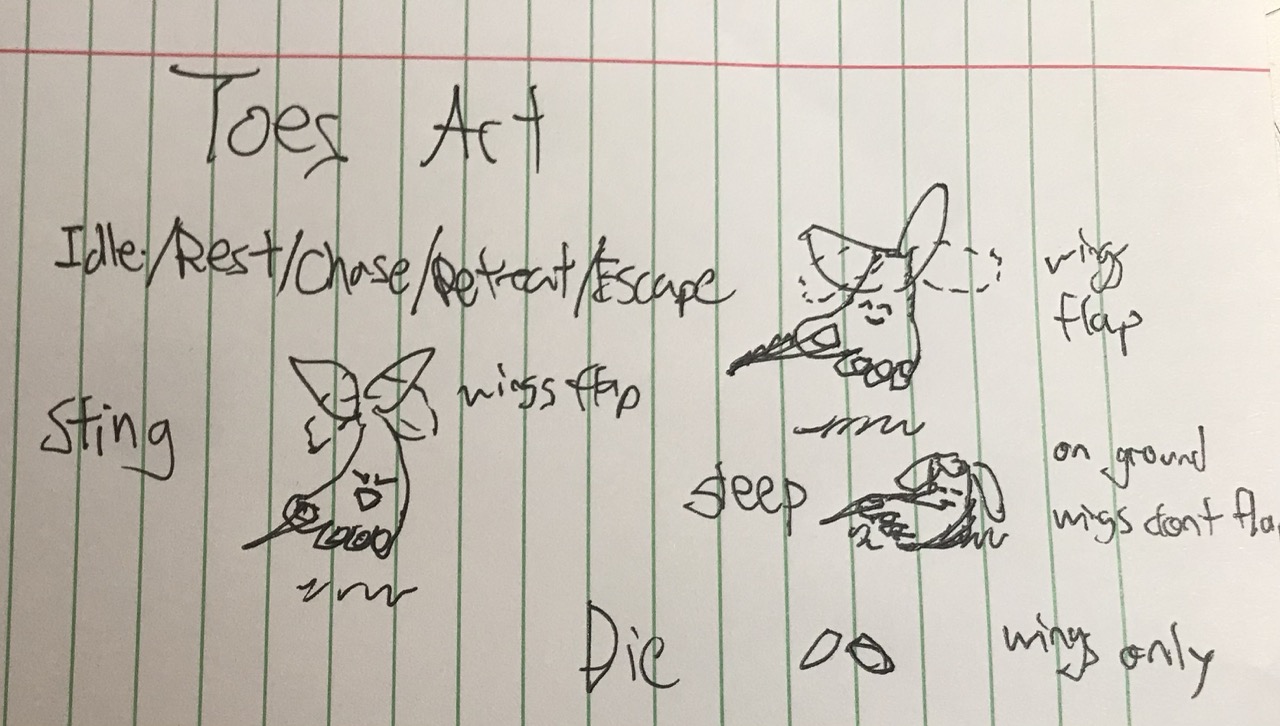 Toes Act
Idle/Rest/Chase/Retreat/Escape
wings
flap
Sting
wigs flap
sleep
on ground
wigs dont fla
Die
wings only